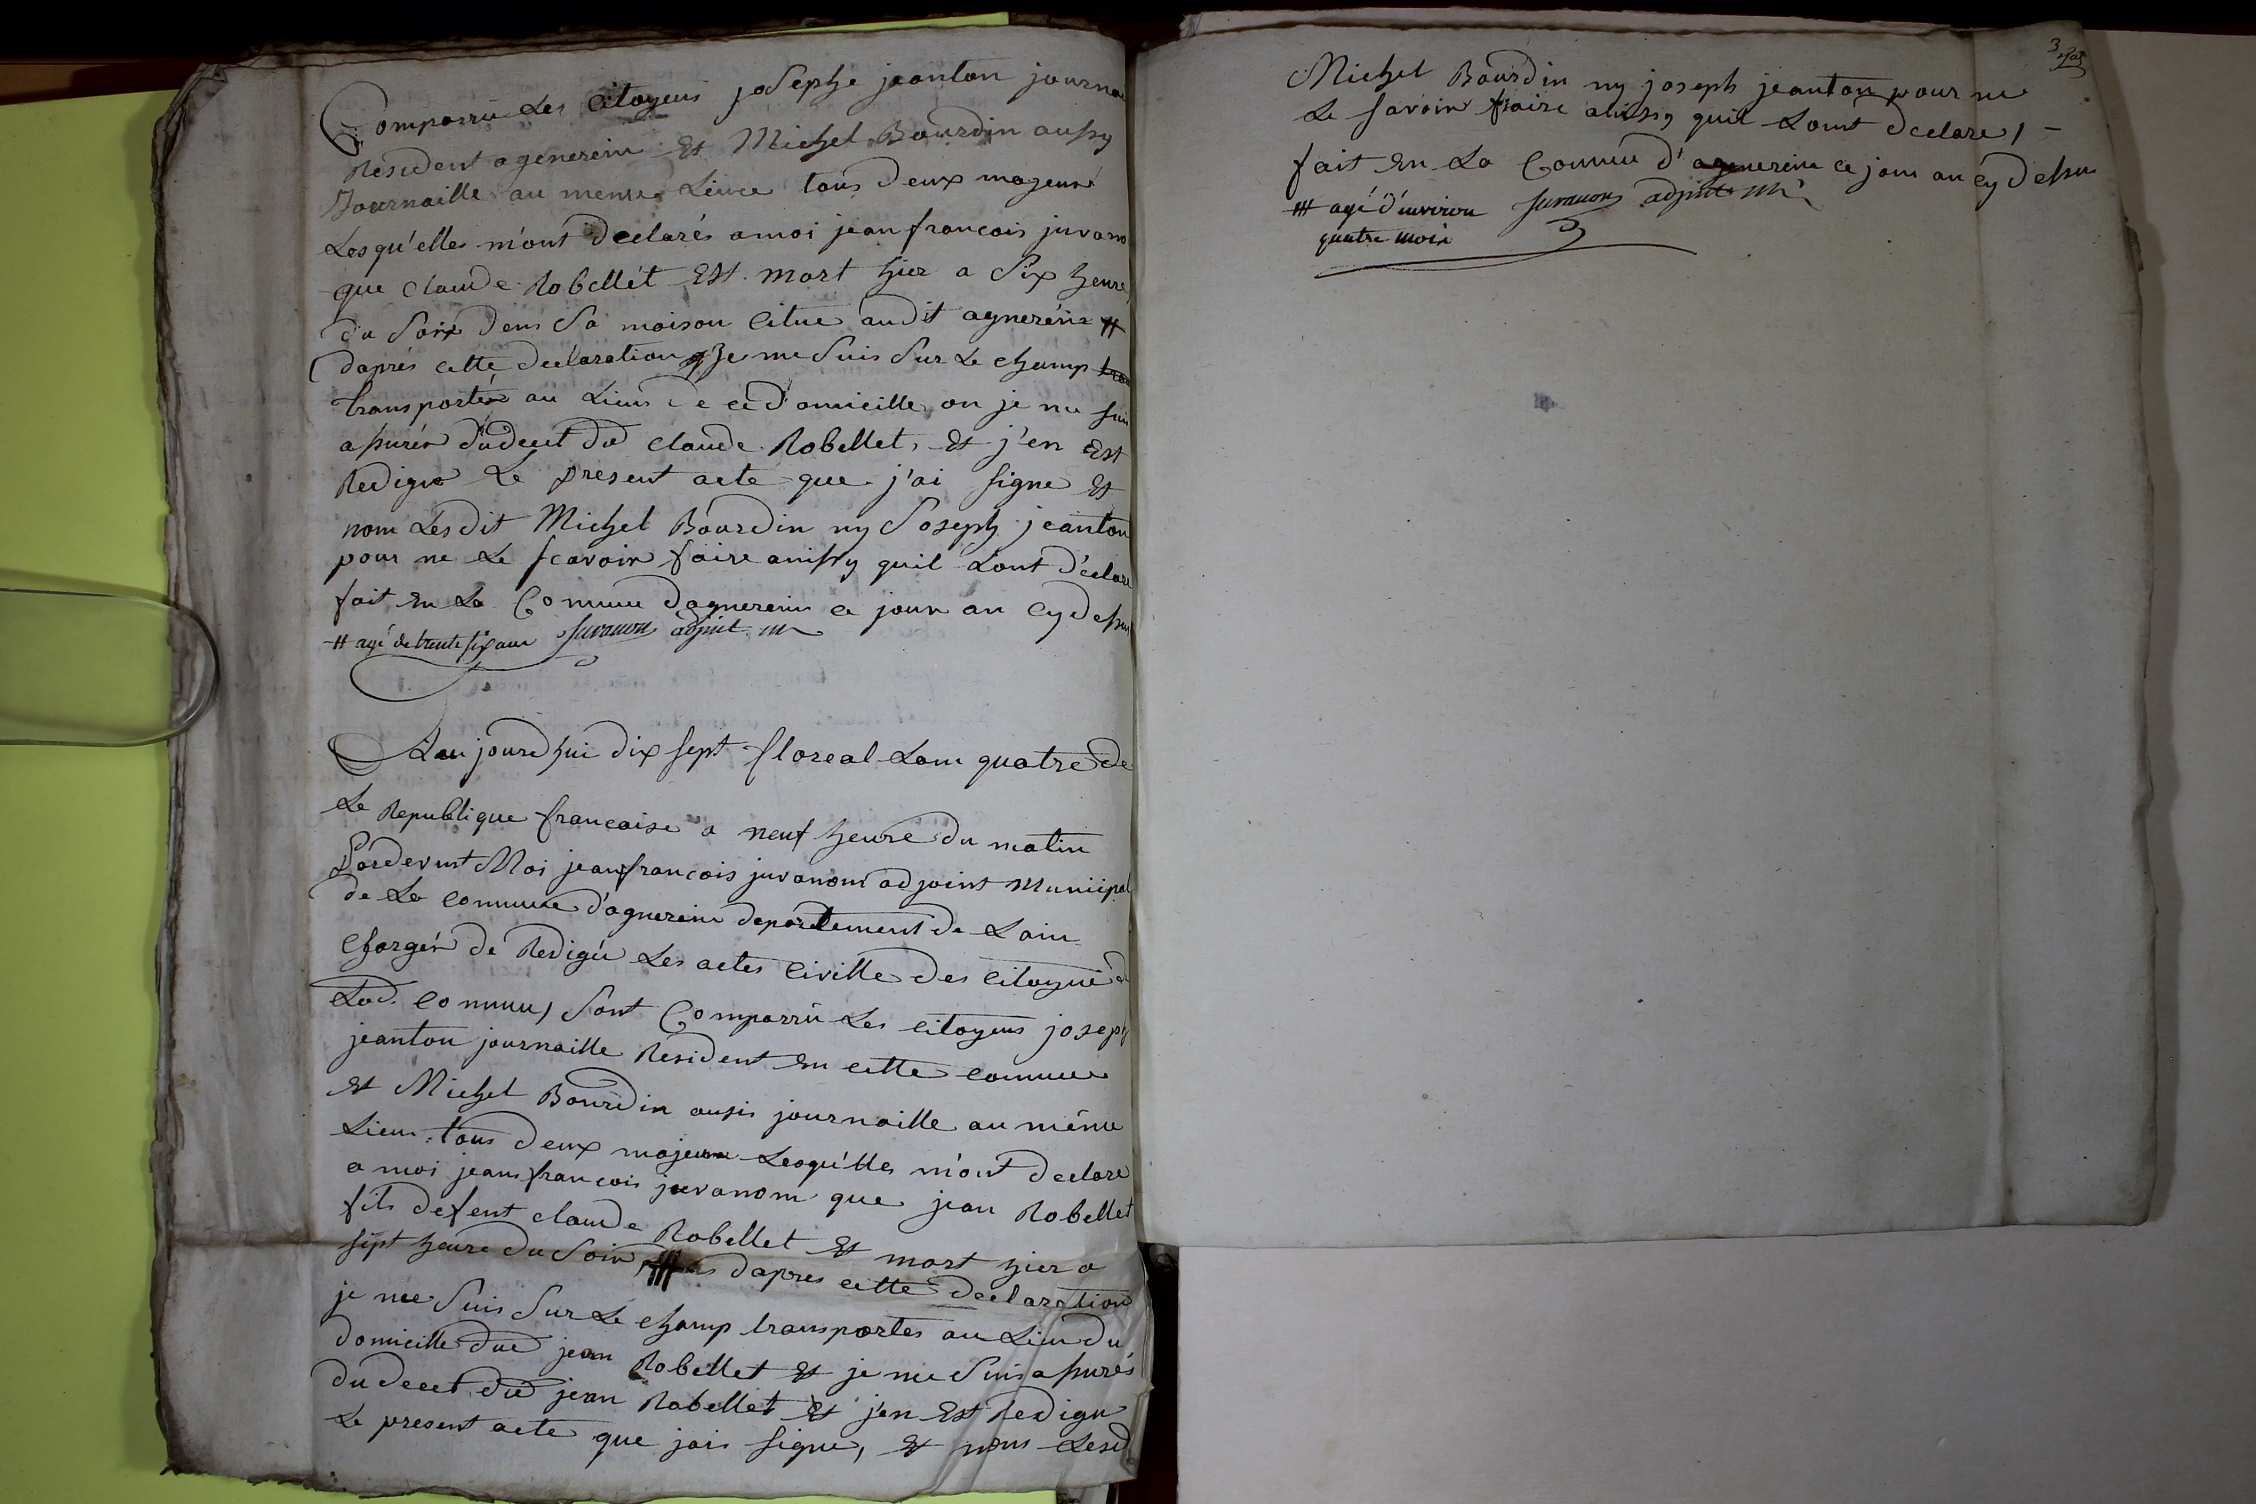 Comparrü Les Citoyens joSephe jeanton journa
Resident agenerein Et Michel Bourdin aussy
Journaille au meme Lieue tous deux mageure
Lesqu'elles m'ont declarés a moi jean francois juvano
que claude Robellét Est mort hier a Six heure
du Soir dens Sa maison Citue audit agneréin #
daprés cette declaration Je me Suis Sur Le champ tra
transportéz au Lieus de ce domicille ou je me sui
assurér du decet du claude Robellet, Et j'en Est
Redigee Le present acte que j'ai signe Et
nom Lesdit Michel Bourdin ny Joseph jeanton
pour ne Le scavoir faire ainssy quil Lont déclare
fait En La Commue dagnerein ce jour an Cy dessu
# agé de trente six ans juvanon adjoint m
Laujourdhui dix sept floreal Lan quatre de
Le Republique francaise a neuf heure du matin
Pardevent Moi jeanfrancois juvanom adjoint Municipal
de La Commune d'agnerein departement de Lain
Chargér de Redigér Les actes Civille des Citoyens d
Lad. Commue, Sont Comparrü Les Citoyens joseph
jeanton journaille Resident En cette commue
Et Michel Bourdin ausis journaille au même
Lieus, tous deux majeure Lesqu'elles m'ont declare
a moi jeans francois juvanom que jean Robellet
fils defeut claude Robellet Et mort hier a
sept heure du Soir #### dapres cette declaration
je me Suis Sur Le champ transportés au Lieu du
domicille due jean Robellet Et je me Suis assurés
du decet due jean Robellet Et j'en Est Redigee
Le present acte que jais signe, Et nom Lesd
3
Michel Bourdin ny joseph jeanton pour ne
Le savoir faire ainssy quil Lont declare, -
fait En La Commue d'agnerein ce jour an cy dessu
#### agé d'environ juvanon adjoint m
quatre mois